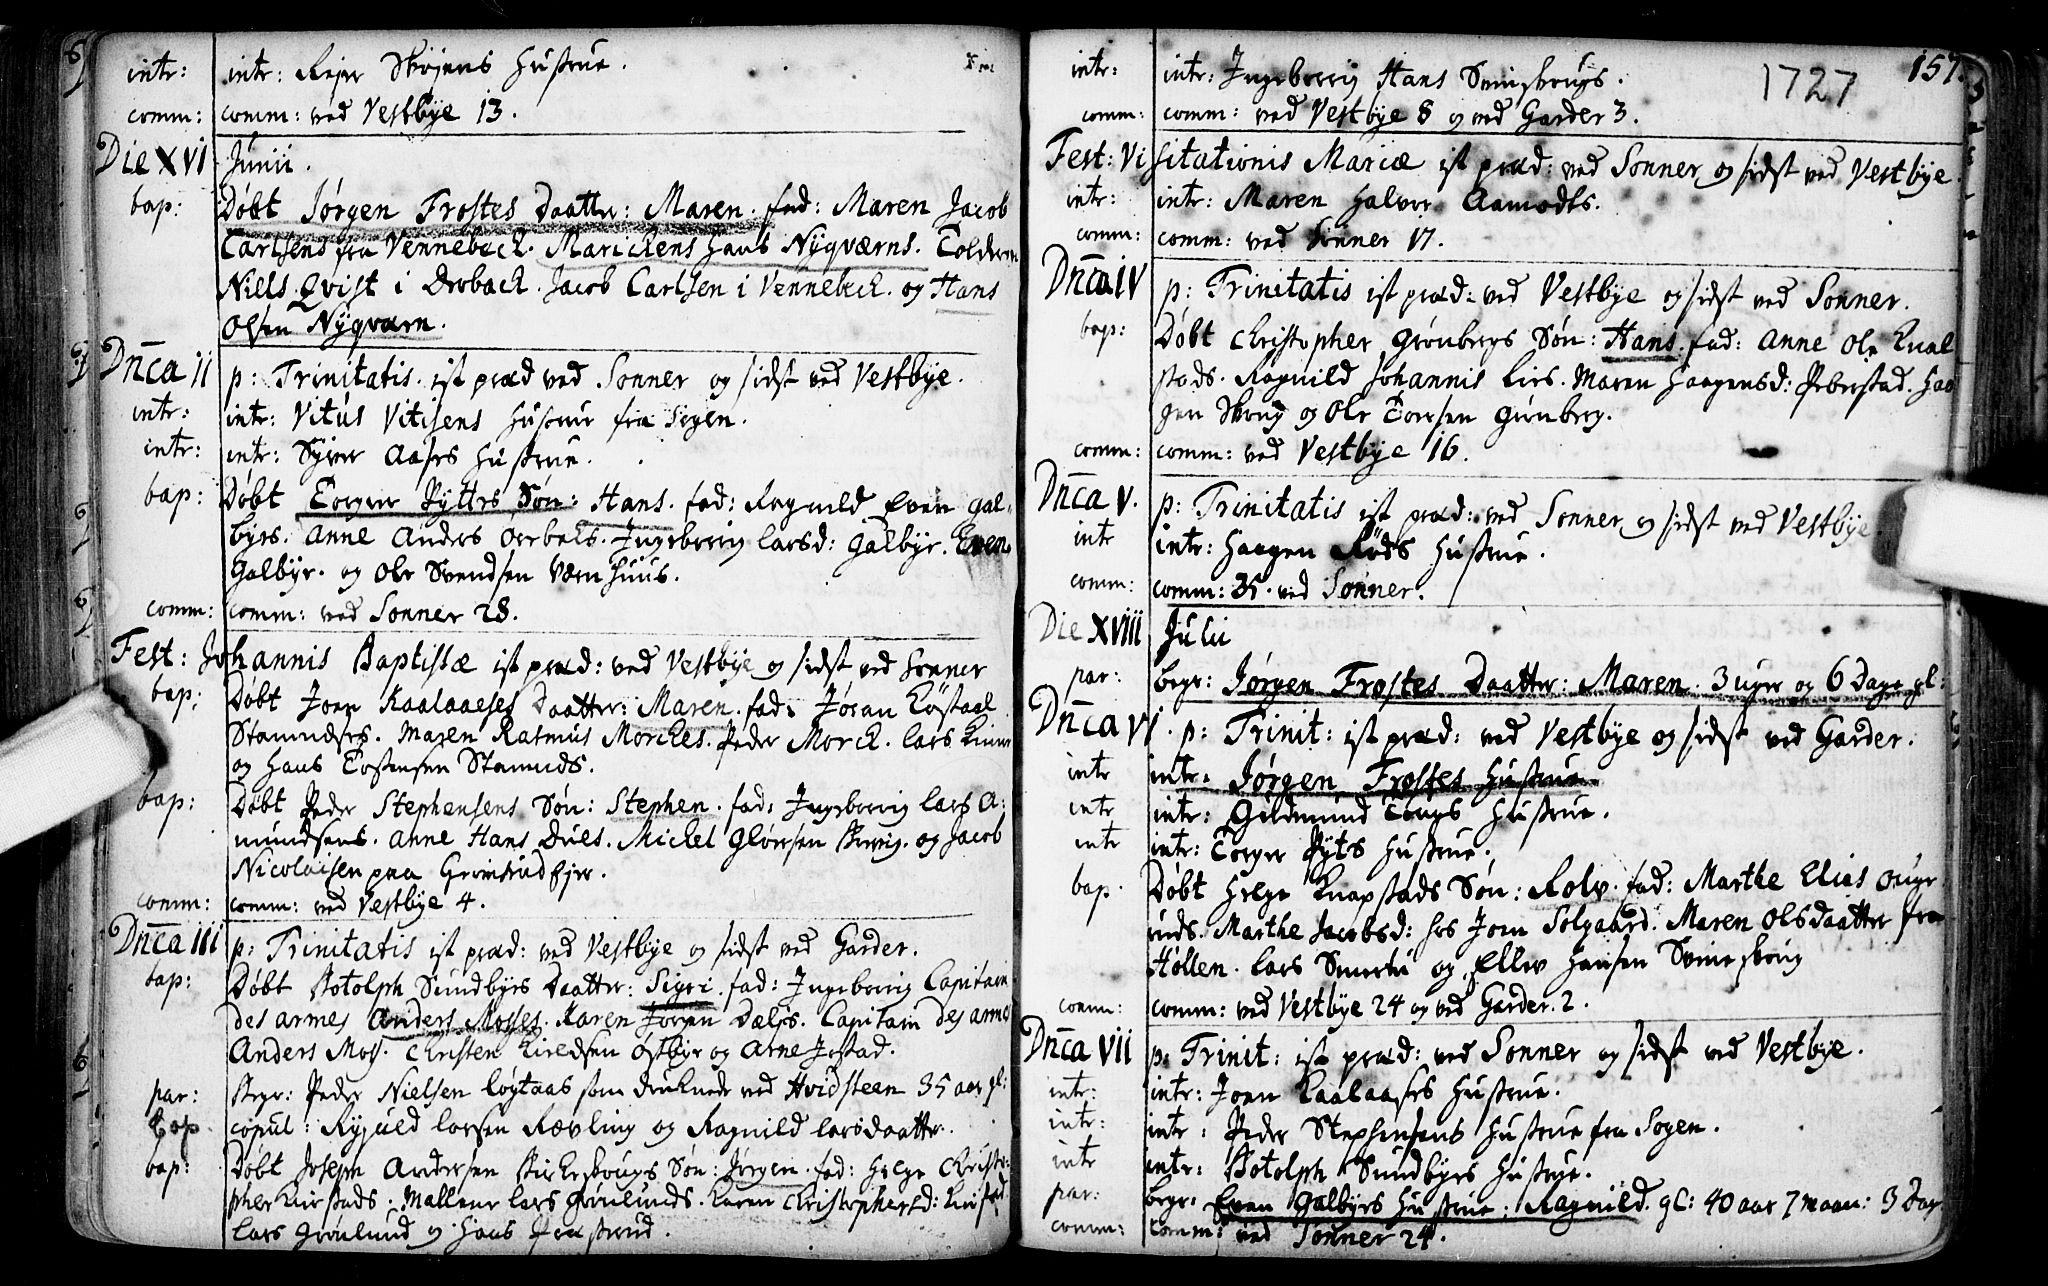 intr: intr: Rejer Skøyens Hustrue.
comm: comm: ved Vestbye 13.
Die XVI Junii.
bap: Døbt Jørgen Frostes Daatter: Maren. fad: Maren Jacob
Carlsens fra Vennebeck. Marichens Hans Nÿgværns. Tolderen
Niels Qvist i Drøback. Jacob Carlsen i Vennebeck. og Hans
Olsen Nÿgværn.
Dn̄ca II p: Trinitatis. ist præd ved Sonner og sidst ved Vestbÿe.
intr: intr: Vitus Vitisens Hustrue fra Sogen.
intr: intr: Syver Aases Hustrue.
bap: Døbt Torger Rytters Søn: Hans. fad: Ragnild Even Gal-
byes. Anne Anders Ørebeks. Ingeborrig Larsd: Galbye. Even
Galbye. og Ole Svendsen Værnhuus.
comm: comm: ved Sonner 28.
Fest: Johannis Baptistæ ist præd: ved Vestbÿe og sidst ved Sonner
bap: Døbt Joen Kaalaases Daatter: Maren. fad: Jøran
Maren Rasmus Morckes. Peder Morck. Lars
og Hans Tostensen
bap: Døbt Peder Stephensens Søn: Stephen. fad: Ingeborrig Lars A:
mundsens. Anne Hans Dues. Michel Gloersen og Jacob
Nicolaisen paa Grimsrud Ejer.
comm: comm: ved Vestbÿe 4.
Dn̄ca III p: Trinitatis ist præd: ved Vestbye og sidst ved Garder.
bap: Døbt Botolph Sundbyes Daatter: Sigri. fad: Ingeborrig Capitain
des armes Anders Mosses. Karen Jørgen Dæles. Capitain des armes
Anders Moss. Christen Kieldsen Østbye og Arne Jostad.
par: Begr: Peder Nielsen Løgtaas som druknede ved Hvidsteen 35 aar gl:
Cop copul: Ryjuld Larsen Rævling og Ragnild Larsdaatter.
bap: Døbt Joseph Andersen Birkeskougs Søn: Jørgen. fad: Helge Christo:
pher Mallene Lars Grønlunds. Karen Christophersd:
Lars Grønlund og Hans
1727 157.
intr: intr: Ingeborrig Hans Svinskougs.
comm: comm: ved Vestbÿe 8 og ved Garder 3.
Fest: Visitationis Mariæ ist præd: ved Sonner og sidst ved Vestbÿe.
intr: intr: Maren Halvor Aamodts.
comm: comm: ved Sonner 17.
Dn̄ca IV p: Trinitatis ist præd: ved Vestbÿe og sidst ved Sonner.
bap: Døbt Christopher Grønbergs Søn: Hans. fad: Anne Ole Knap
stads. Ragnild Johannis Lies. Maren Haagensd: Berstad. Haa
gen Skoug og Ole Toresen Grønberg.
comm: comm: ved Vestbÿe 16.
Dn̄ca V. p: Trinitatis ist præd: ved Sonner og sidst ved Vestbÿe.
intr intr: Haagen Røds Hustrue.
comm: comm: 35. ved Sonner.
Die XVIII Julii
par: begr: Jørgen Frostes Daatter: Maren. 3 uger og 6 Dage gl:
Dn̄ca VI. p: Trinit: ist præd: ved Vestbÿe og sidst ved Garder.
intr intr: Jørgen Frostes Hustrue
intr intr: Guldmund Tougs Hustrue.
intr intr: Torger Ryts Hustrue.
bap. Døbt Helge Knapstads Søn: Rolv. fad: Marthe Elias
ruds. Marthe Jacobsd: hos Joen Solgaard. Maren Olsdaatter fra
Høllen. Lars Smertu og Ellev Hansen Svineskoug
comm: comm: ved Vestbÿe 24 og ved Garder. 2.
Dn̄ca VII p: Trinit: ist præd: ved Sonner og sidst ved Vestbÿe.
intr: intr: Joen Kaalaases Hustrue.
intr: intr: Peder Stephensens Hustrue fra Sogen.
intr intr: Botolph Sundbyes Hustrue.
par: begr: Even Galbyes Hustrue: Ragnild. gl: 40 aar 7 maan: 3 Dag
comm: comm: ved Sonner 24.